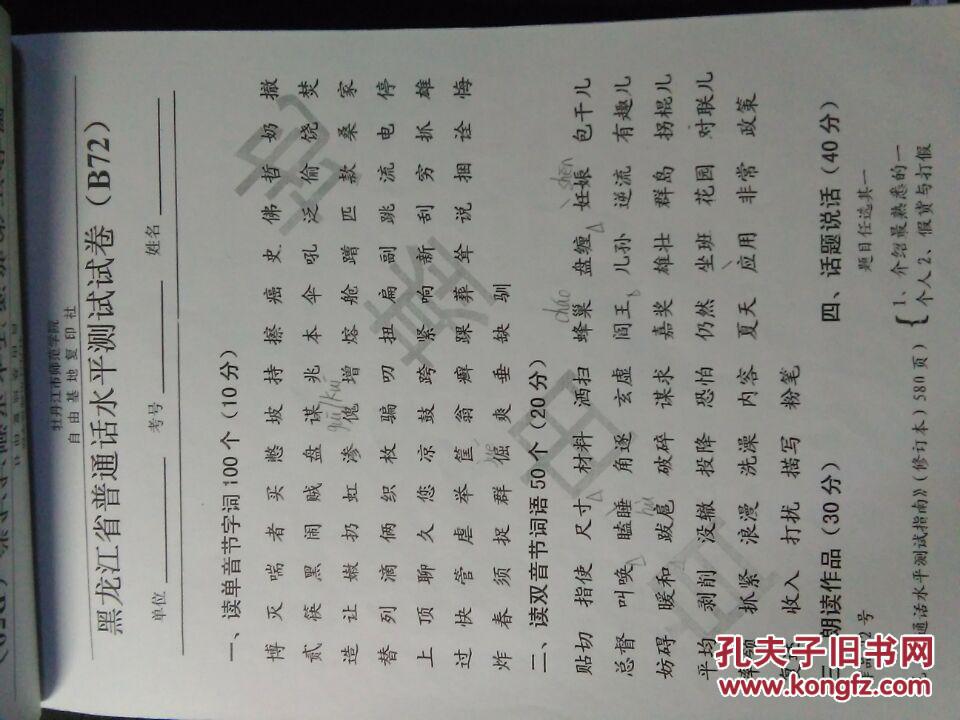 牡丹江市师范学院
自由基地复印社
黑龙江省普通话水平测试试卷(B72)
单位 考号 姓名
一、读单音节字词100个(10分)
博 灭 喘 者 买 憋 坡 持 擦 癌 史 佛 哲 奶 撤
贰 筷 黑 闹 贼 盘 谋 兆 本 伞 吼 泛 偷 饶 焚
造 让 嫩 扔 虹 渗 愧 增 熔 舱 蹭 匹 款 桑 家
替 列 滴 俩 织 枚 骗 叨 扭 扁 副 跳 流 电 停
上 顶 聊 久 您 凉 鼓 跨 紧 响 新 刮 穷 抓 雄
过 快 管 虐 举 筐 翁 癣 踝 葬 耸 说 捆 诠 悔
炸 春 须 捉 群 掘 爽 垂 缺 驯
kuì
二、读双音节词语50个(20分)
贴切 指使 尺寸 材料 洒扫 蜂巢 盘缠 妊娠 包干儿
cháo
shēn
总督 叫唤 瞌睡 角逐 玄虚 阎王 儿孙 逆流 有趣儿
妨碍 暖和 跋扈 破碎 谋求 嘉奖 雄壮 群岛 拐棍儿
hù
平均 剥削 没辙 投降 恐怕 仍然 坐班 花园 对联儿
抓紧 浪漫 洗澡 内容 夏天 应用 非常 政策
收入 打扰 描写 粉笔
三、朗读作品(30分)
2号
通话水平测试指南》(修订本)580页)
四、话题说话(40分)
题目任选其一
1、介绍最熟悉的一个人2、假货与打假
孔夫子旧书网
www.kongfz.com